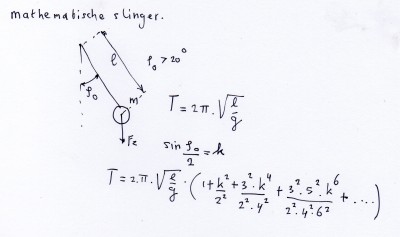 mathematische slinger.
φ₀ > 20°
ℓ
φ₀
m
T = 2π.√(ℓ/g)
Fz
sin φ₀/2 = k
T = 2.π.√(ℓ/g) . (1 + k²/2² + 3².k⁴/2².4² + 3².5².k⁶/2².4².6² + ....)